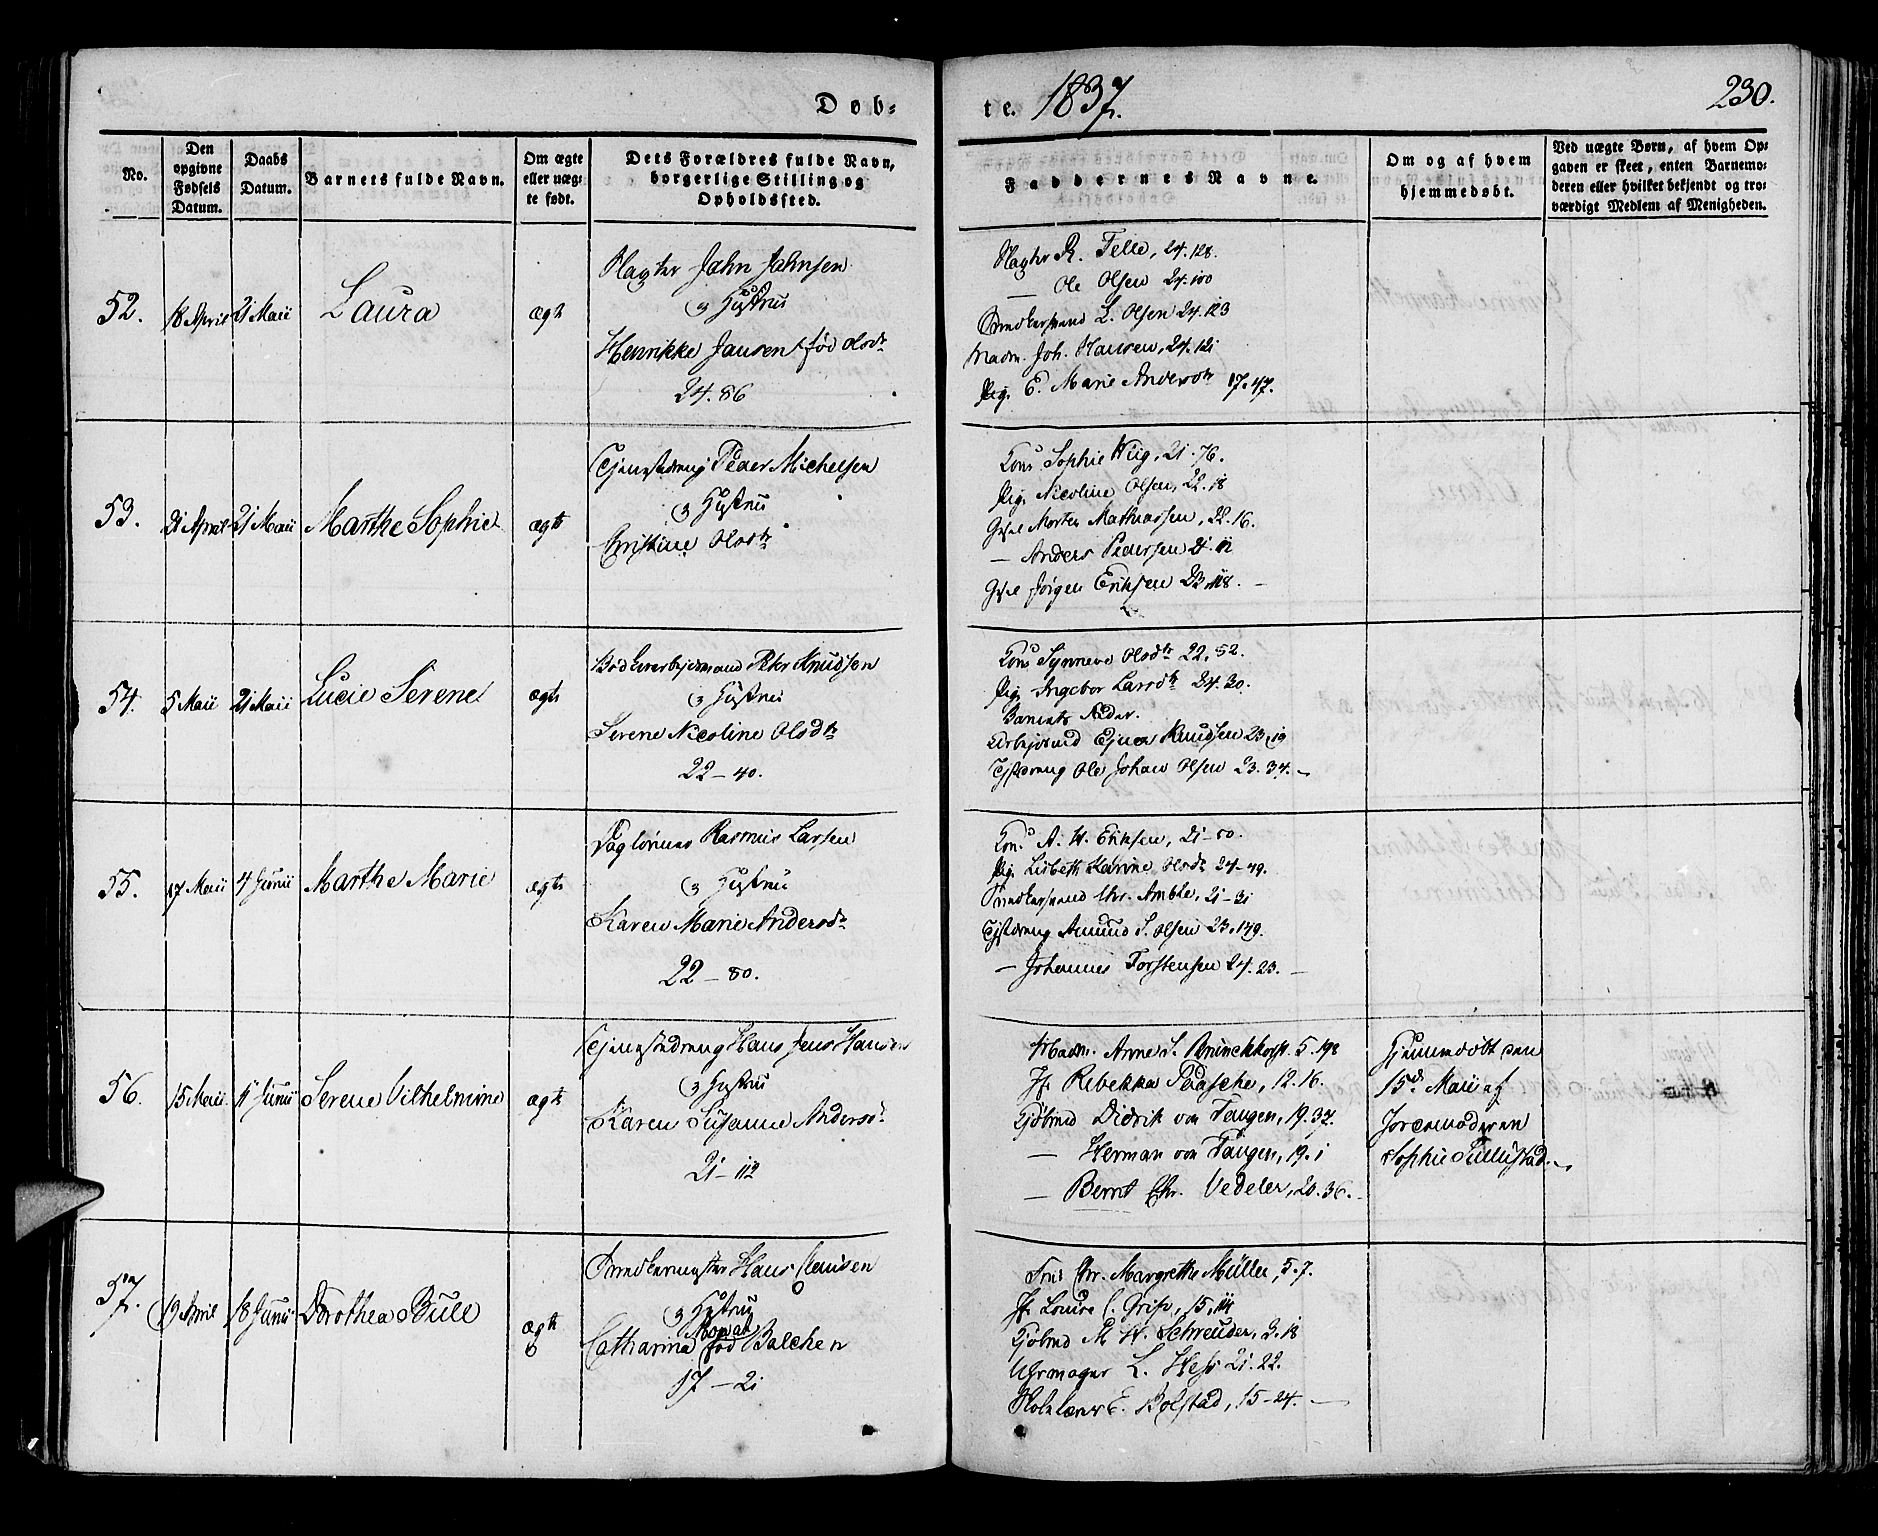 Døb-
te. 1837.
230.
No.
Den opgivne Fødsels Datum.
Daabs Datum.
Barnets fulde Navn.
Om ægte eller uægte født.
Dets Forældres fulde Navn, borgerlige Stilling og Opholdssted.
Faddernes Navne.
Om og af hvem hjemmedøbt.
Ved uægte Børn, af hvem Opgaven er skeet, enten Barnemoderen eller hvilket bekjendt og troværdigt Medlem af Menigheden.
52.
18 April
21 Maii
Laura
ægte
Slagter Jahn Jahnsen
Hustrue
Henrikke Jansen fød Olsdr
24. 86
Slagter R. Telle, 24. 128.
— Ole Olsen 24. 100
Snedkersvend L. Olsen 24. 123
Madm. Joh. Hansen, 24. 121
Pig. E. Marie Andersdr 17. 47.
53.
21 April
21 Maii
Marthe Sophie
ægte
Tjenestedreng Peder Michelsen
Hustrue
Christine Olsdr
Kone Sophie Wiig, 21. 76.
Pig. Nicoline Olsen, 22. 18
Morten Mathiassen, 22. 16.
— Anders Pedersen 21. 12
Jørgen Eriksen 23. 118. —
54.
5 Maii
21 Maii
Lucie Serene
ægte
Peter Knudsen
Hustrue
Serene Nicoline Olsdr
22 – 40.
Kone Synneve Olsdr 22. 52.
Pig. Ingebor Larsdr 24. 30.
Barnets Fader.
Arbejdsmd Ejner Knudsen 23. 19
Tjstdreng Ole Johan Olsen 23. 34. —
55.
17 Maii
4 Junii
Marthe Marie
ægte
Daglønner Rasmus Larsen
Hustrue
Karen Marie Andersdr
22 – 80.
Kone A. W. Eriksen, 21–50.
Pig. Lisbeth Karine Olsdr 24–49.
Snedkersvend Chr. Amble, 21–31
Tjstdreng Amund S. Olsen 23. 149.
— Johannes Torstensen 24. 23. —
56.
15 Maii
11 Junii
Serene Vilhelmine
ægte
Tjenestedreng Hans Jens Hansen
Hustrue
Karen Susanne Andersdr
21 – 112
Madm. Anne S. Brinckhorst. 5. 198
Jf. Rebekka Paasche, 12. 16.
Kjøbmd Didrik von Tangen, 19. 37.
— Herman von Tangen, 19. 1
— Bernt Chr. Vedeler, 20. 36.
Hjemmedøbt den
15de Maii af
Jordemoderen
Sophie Tullestad. —
57.
19 April
18 Junii
Dorothea Bull
ægte
6
Snedkermester Hans Clausen
Hustrue
Catharina fød Balchen
17 – 21
Frue Chr. Margrethe Müller, 5. 7.
Jf. Lovise C. Griis, 15. 114
Kjøbmd M. W. Schreuder, 3. 18
Uhrmager L. Hess 21. 22.
E. Bolstad, 15–24. —